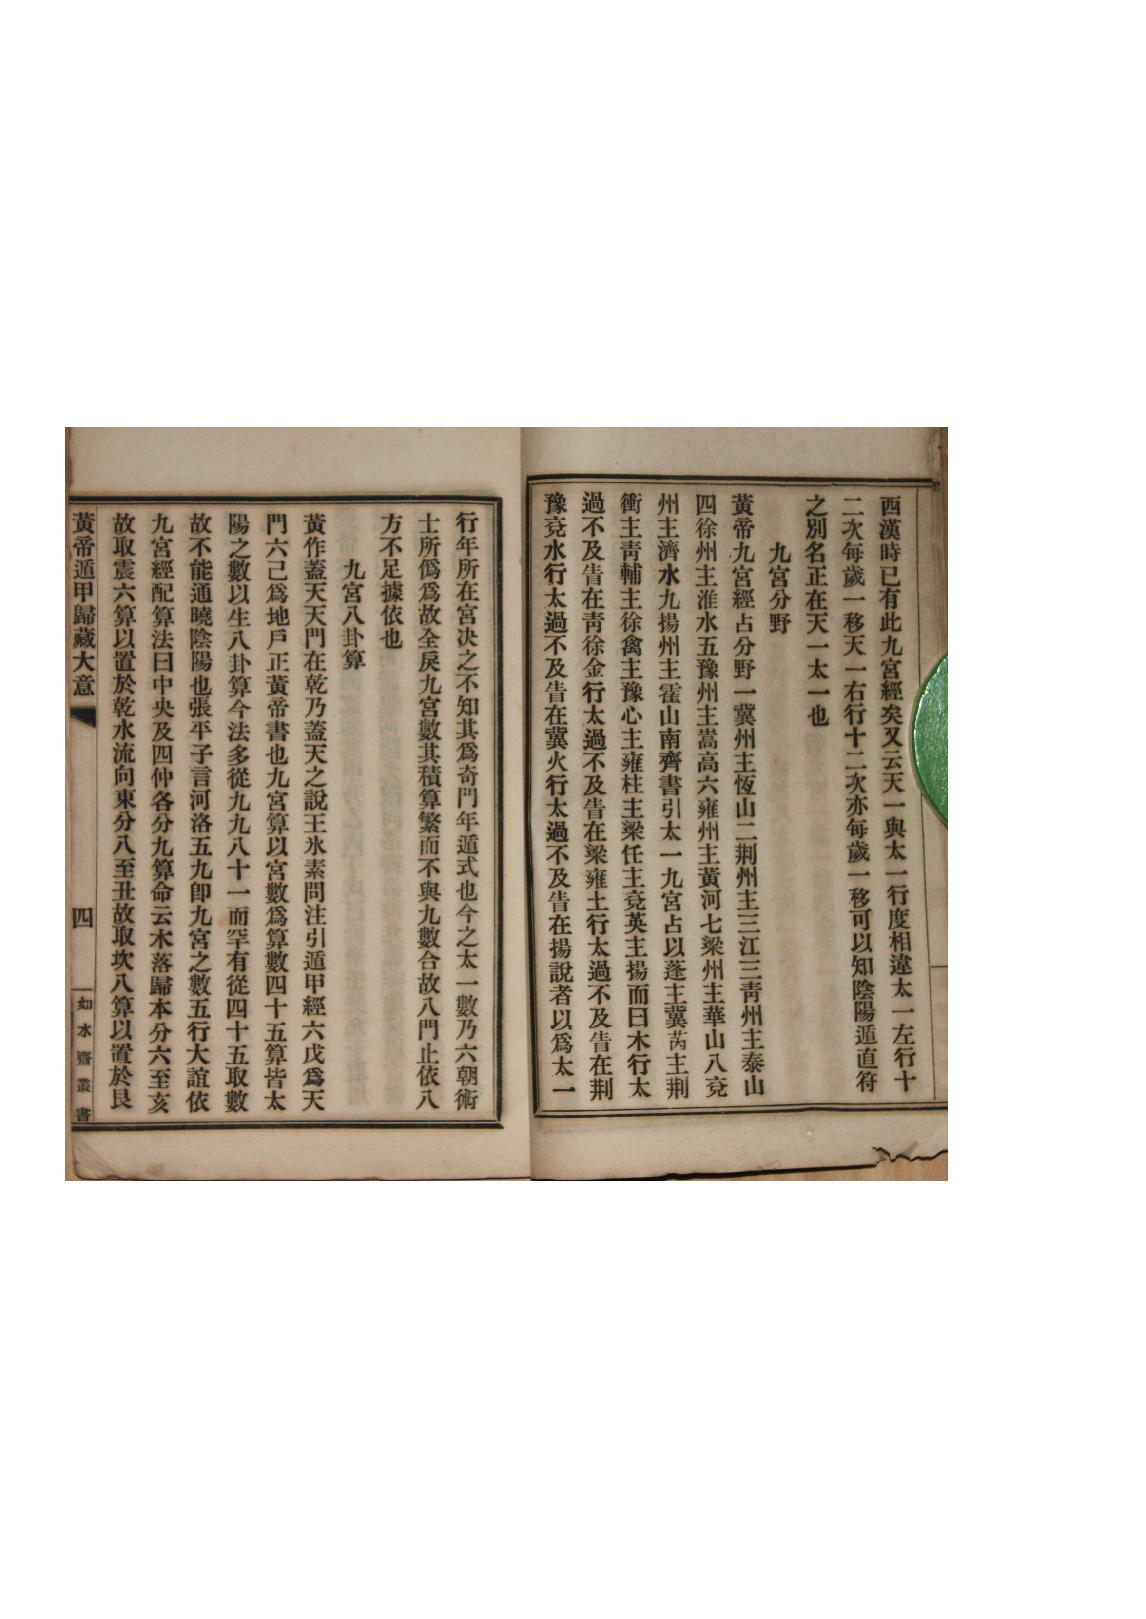 西漢時已有此九宮經矣又云天一與太一行度相違太一左行十
二次每歲一移天一右行十二次亦每歲一移可以知陰陽遁直符
之別名正在天一太一也
九宮分野
黃帝九宮經占分野一冀州主恆山二荆州主三江三青州主泰山
四徐州主淮水五豫州主嵩高六雍州主黃河七梁州主華山八兗
州主濟水九揚州主霍山南齊書引太一九宮占以蓬主冀芮主荆
衝主青輔主徐禽主豫心主雍柱主梁任主兗英主揚而曰木行太
過不及眚在青徐金行太過不及眚在梁雍土行太過不及眚在荆
豫兗水行太過不及眚在冀火行太過不及眚在揚說者以爲太一
行年所在宮決之不知其爲奇門年遁式也今之太一數乃六朝術
士所僞爲故全戾九宮數其積算繁而不與九數合故八門止依八
方不足據依也
九宮八卦算
黃作蓋天天門在乾乃蓋天之說王氷素問注引遁甲經六戊爲天
門六己爲地戶正黃帝書也九宮算以宮數爲算數四十五算皆太
陽之數以生八卦算今法多從九九八十一而罕有從四十五取數
故不能通曉陰陽也張平子言河洛五九卽九宮之數五行大誼依
九宮經配算法曰中央及四仲各分九算命云木落歸本分六至亥
故取震六算以置於乾水流向東分八至丑故取坎八算以置於艮
黃帝遁甲歸藏大意
四
如水齋叢書